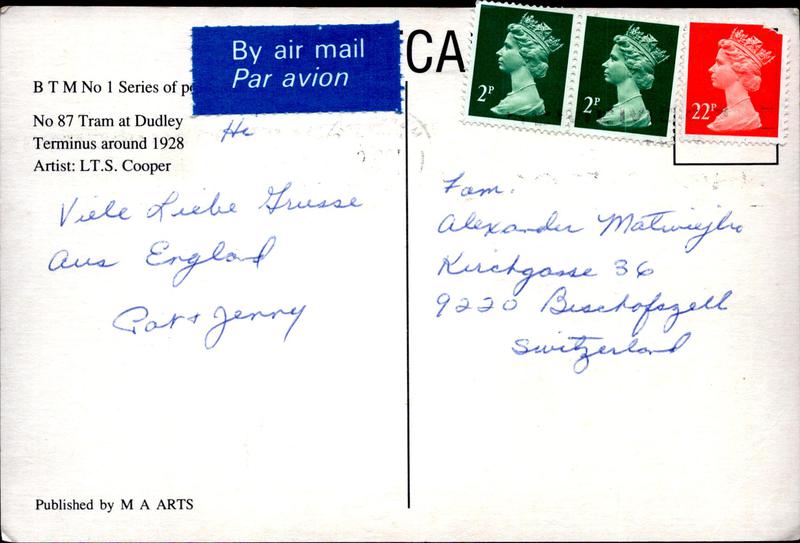 By air mail
Par avion
CA
B T M No 1 Series of
No 87 Tram at Dudley
Terminus around 1928
Artist: LT.S. Cooper
2P
2P
22P
Viele Liebe Grüsse
Aus England
Pat + Jenny
Fam.
Alexander
Kirchgasse 36
9220 Bischofszell
Switzerland
Published by M A ARTS